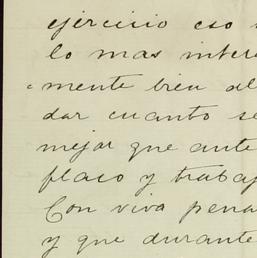 ejercicio eso
lo mas
mente bien
dar cuanto se
mejor que ante
flaco y trabaj
Con viva pena
y que durante